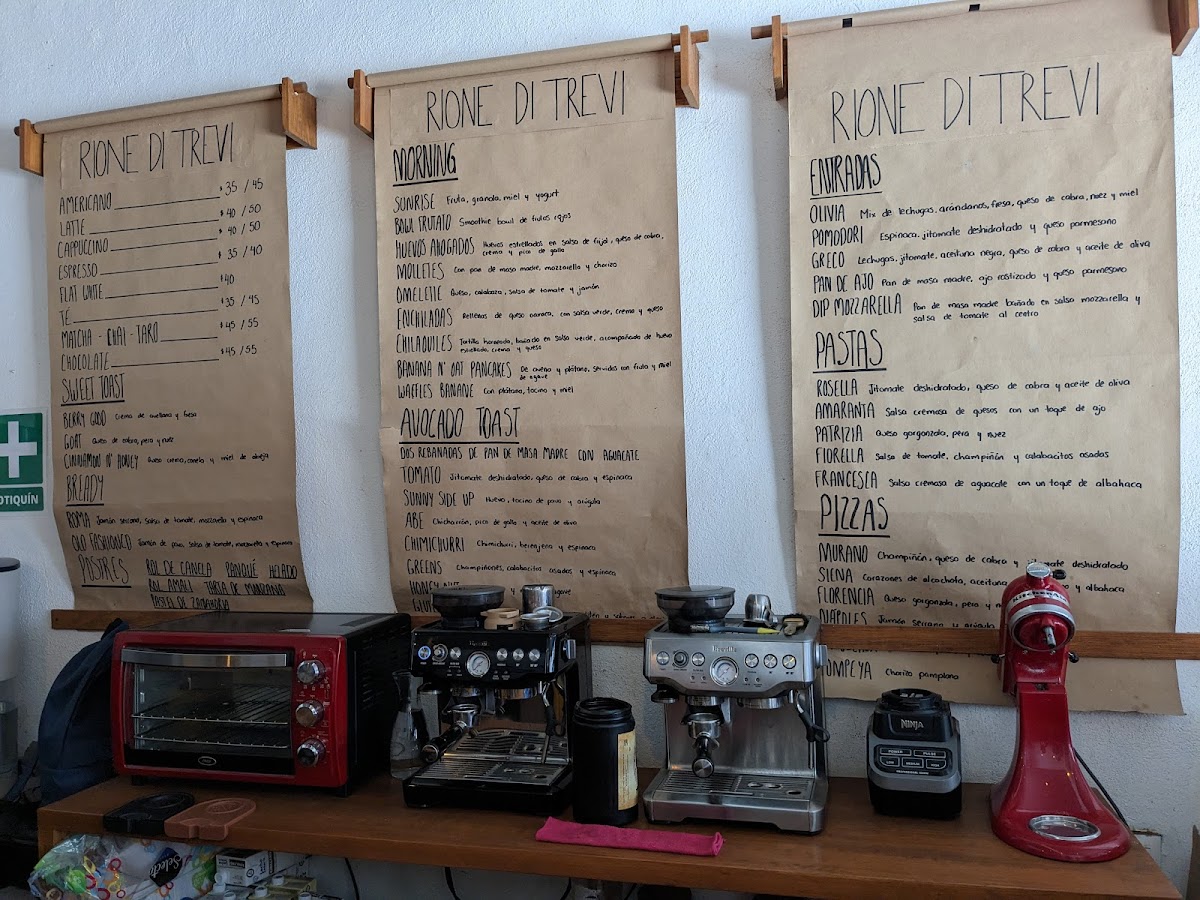 RIONE DI TREVI
AMERICANO $35 / 45
LATTE $40 / 50
CAPPUCCINO $40 / 50
ESPRESSO $35 / 40
FLAT WHITE $40
TÉ $35 / 45
MATCHA - CHAI - TARO $45 / 55
CHOCOLATE $45 / 55
SWEET TOAST
BERRY GOOD Crema de avellana y fresa
GOAT Queso de cabra, pera y nuez
CINNAMON N' HONEY Queso crema, canela y miel de abeja
BREADY
ROMA Jamón serrano, salsa de tomate, mozzarella y espinaca
OLD FASHIONED Jamón de pavo, salsa de tomate, mozzarella y espinaca
POSTRES ROL DE CANELA PANQUÉ HELADO
ROL AMALI TARTA DE MANZANA
PASTEL DE ZANAHORIA
RIONE DI TREVI
MORNING
SUNRISE Fruta, granola, miel y yogurt
BOWL FRUTATO Smoothie bowl de frutos rojos
HUEVOS AHOGADOS Huevos estrellados en salsa de frijol, queso de cabra,
crema y pico de gallo
MOLLETES Con pan de masa madre, mozzarella y chorizo
OMELETTE Queso, calabaza, salsa de tomate y jamón
ENCHILADAS Rellenas de queso oaxaca, con salsa verde, crema y queso
CHILAQUILES Tortilla horneada, bañada en salsa verde, acompañada de huevo
estrellado, crema y queso
BANANA N' OAT PANCAKES De avena y plátano, servidos con fruta y miel
de agave
WAFFLES BANANE Con plátano, tocino y miel
AVOCADO TOAST
DOS REBANADAS DE PAN DE MASA MADRE CON AGUACATE
TOMATO Jitomate deshidratado, queso de cabra y espinaca
SUNNY SIDE UP Huevo, tocino de pavo y arúgula
ABE Chicharrón, pico de gallo y aceite de olivo
CHIMICHURRI Chimichurri, berenjena y espinaca
GREENS Champiñones, calabacitas asadas y espinaca
RIONE DI TREVI
ENTRADAS
OLIVIA Mix de lechugas, arándanos, fresa, queso de cabra, nuez y miel
POMODORI Espinaca, jitomate deshidratado y queso parmesano
GRECO Lechugas, jitomate, aceituna negra, queso de cabra y aceite de oliva
PAN DE AJO Pan de masa madre, ajo rostizado y queso parmesano
DIP MOZZARELLA Pan de masa madre bañado en salsa mozzarella y
salsa de tomate al centro
PASTAS
ROSELLA Jitomate deshidratado, queso de cabra y aceite de oliva
AMARANTA Salsa cremosa de quesos con un toque de ajo
PATRIZIA Queso gorgonzola, pera y nuez
FIORELLA Salsa de tomate, champiñón y calabacitas asadas
FRANCESCA Salsa cremosa de aguacate con un toque de albahaca
PIZZAS
MURANO Champiñón, queso de cabra y jitomate deshidratado
SIENA Corazones de alcachofa, aceituna y albahaca
FLORENCIA Queso gorgonzola, pera y
NÁPOLES Jamón serrano y arúgula
OMPEYA Chorizo pamplona
OTIQUÍN
KitchenAid
Breville
NINJA
POWER PULSE
Selecto